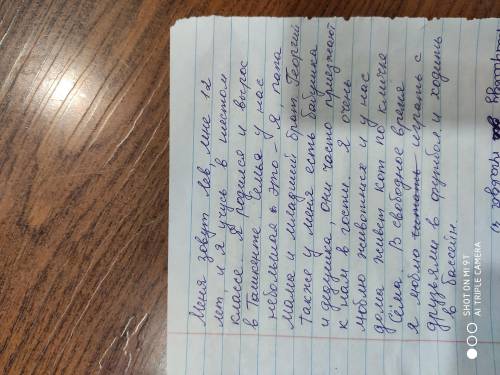 Меня зовут Лев, мне 12
лет и я учусь в шестом
классе. Я родился и вырос
в Ташкенте. Семья у нас
небольшая, это - я, папа
мама и младший брат Георгий
также у меня есть бабушка
и дедушка, они часто приезжают
к нам в гости. Я очень
люблю животных и у нас
дома живет кот по кличке
Сёма. В свободное время
я люблю читать играть с
друзьями в футбол и ходить
в бассейн.
SHOT ON MI 9T
AI TRIPLE CAMERA